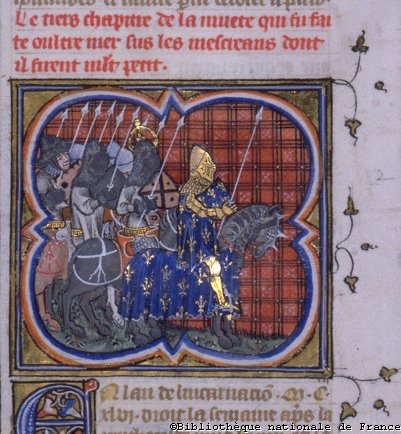 Le tiers chapitre de la muete qui fu fai
te oultre mer sus les mescreans dont
il firent mlt petit.
EN lan de lincarnacio. M. C.
xlvi. droit la semaine aps la
©Bibliothèque nationale de France